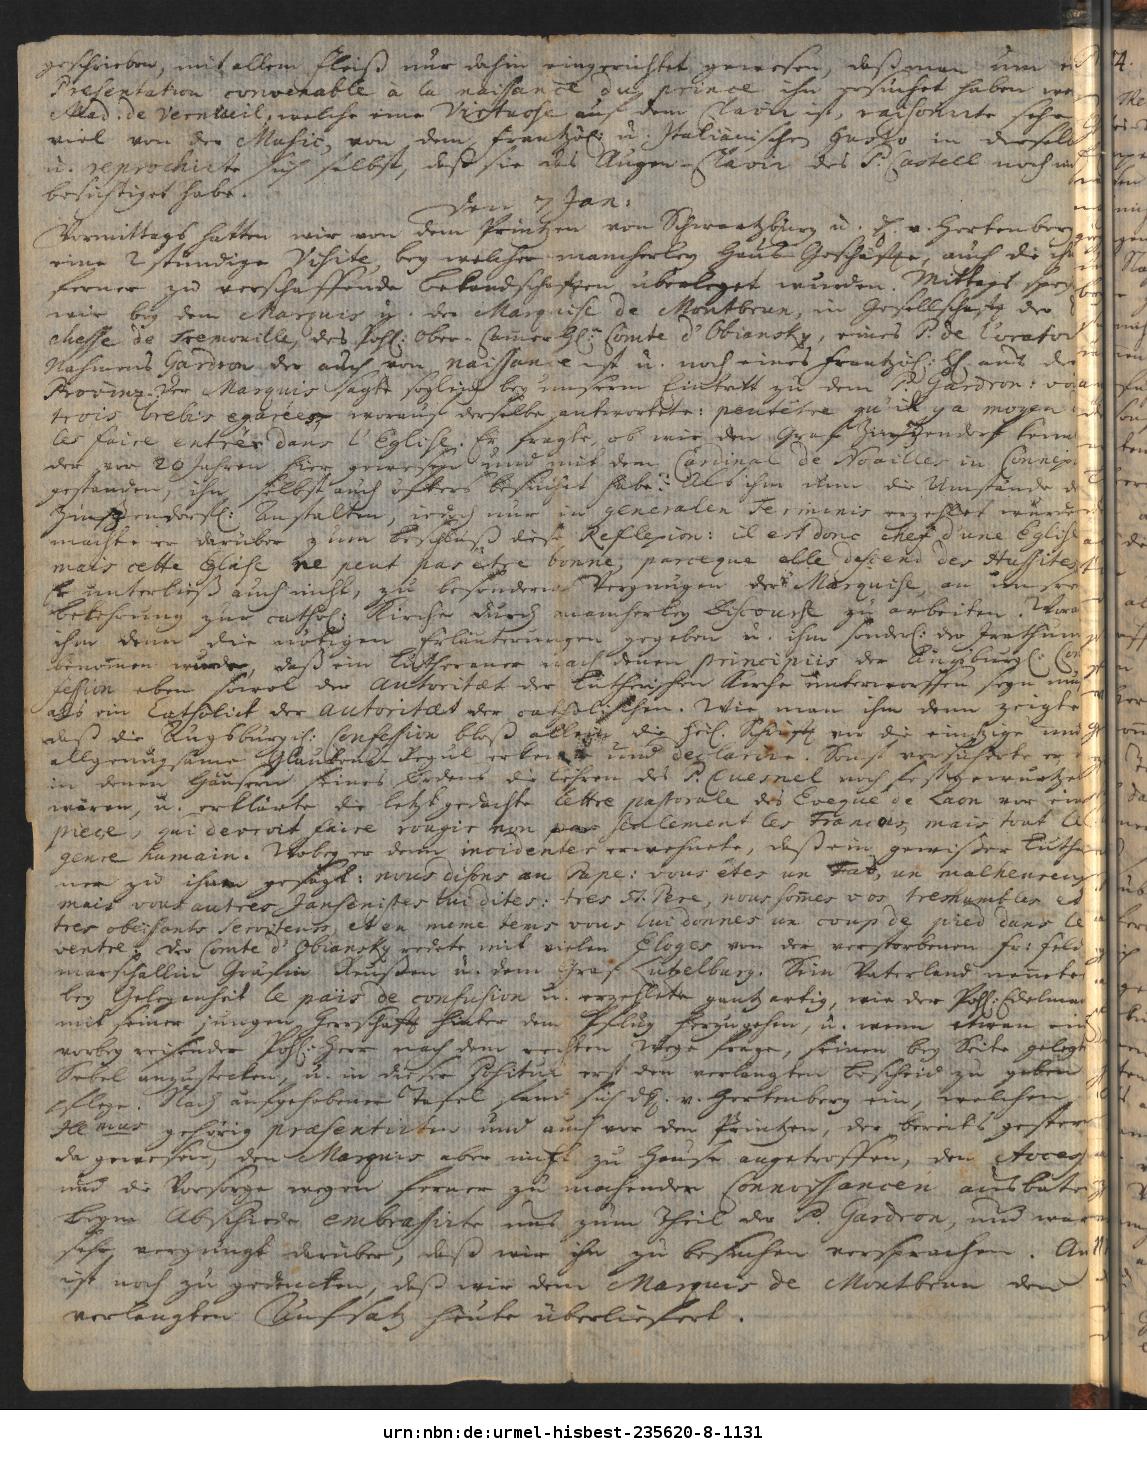 geschrieben, mit allem Fleiß nur dahin eingerichtet gewesen, daß man um
Presentation convenable a la naisance du prince ihn ersuchet haben
Mad: de Verneuil, welche eine Virtuose auf dem Clavir ist, raisonirte sehr
viel von der Music, von dem Frantzös: u. Italiänischen Gusto in derselben
u. reprochirte sich selbst, daß sie das Augen-Clavir des P. Castell noch
besichtiget habe.
Den 7 Jan:
Vormittags hatten wir von dem Printzen von Schwartzburg u. H. v. Hertenberg
eine 2 stündige Visite, bey welcher mancherley Hauß Geschäffte, auch die
ferner zu verschaffende bekandschafften überleget wurden. Mittags
wir bey dem Marquis u. der Marquise de Montbrun, in Gesellschafft der
chesse de Tremouille, des Pohl: Ober-Camerh: Comte d'Obiansky, eines P. de l'orator
Nahmens Gardron der auch von naissance ist u. noch eines Frantzös: H. aus der
Provinz. Der Marquis sagte sogleich bey unserem Eintritt zu dem P. Gardron:
trois brebis egarées, worauf derselbe antwortete: peutêtre qu'il y a moyen
les faire entrer dans l'Eglise. Er fragte, ob wir den Graf Zinzendorf
der vor 20 Jahren hier gewesen und mit dem Cardinal de Noailles in
gestanden, ihn selbst auch öfters besucht habe: Als ihm nun die Umstände
Zinzendorf: Anstalten, jedoch nur in generalen Terminis erzehlet wurden
machte er darüber zum Beschluß diese Reflexion: il est donc chef d'une Eglise
mais cette Eglise ne peut pas etre bonne, parceque elle descend des Hussites
Er unterließ auch nicht, zu besondern Vergnügen der Marquise, an unsere
bekehrung zur cathol: Kirche durch mancherley Discourse zu arbeiten.
ihm denn die nötigen Erläuterungen gegeben u. ihm sonderl: der Irrthum
benommen wurde, daß ein Lutheraner nach denen principiis der Augsburg:
fession eben sowol der autoritæt der Lutherischen Kirche unterworffen seyn
als ein Catholick der autoritæt der catholischen. Wie man ihm denn zeigte
daß die Augsburgisch: Confession bloß allein die heil. Schrifft vor die eintzige
allgenugsame Glaubens-Regul erkenne und declarire. Sonst versicherte er
in denen Häusern seines Ordens die Lehren des P. Quesnel noch fest gewurtzel
wären, u. erklärte die letzt gedachte lettre pastorale des Eveque de Laon vor eine
piece, qui devroit faire rougir non pas seulement les Francois, mais tout le
genre humain. Wobey er denn incidenter erwehnete, daß ein gewißer
ner zu ihm gesagt: nous disons au Pape: vous êtes un Fat, un malheureux
mais vous autres Jansenistes lui dites: tres St. Pere, nous somes vos treshumbles et
tres obeissants serviteurs, et en meme tems vous lui donnes un coup de pied dans le
ventre. Der Comte d'Obiansky redete mit vielen Eloges von der verstorbenen Fr: Feld
marschallin Gräfin Reußen u. dem Graf Lützelburg. Sein Vaterland nennete
bey Gelegenheit le païs de confusion u. erzehlete gantz artig, wie der Pohl: Edelmann
mit seiner jungen Herrschafft hinter dem Pflug herzugehen, u. wenn etwan ein
vorbey reisender Pohl: Herr nach dem rechten Wege frage, seinen bey Seite gelegten
Sebel anzustecken, u. in dieser Positur erst den verlangten bescheid zu geben
pflege. Nach aufgehobener Tafel fand sich H. v. Hertenberg ein, welchen
gehörig præsentirten und auch vor den Printzen, der bereits gestern
da gewesen, den Marquis aber nicht zu Hause angetroffen, den Acces
und die Vorsorge wegen ferner zu machender Connoissancen ausbate
beym Abschiede embrassirte uns zum Theil der P. Gardron, und war
sehr vergnügt darüber, daß wir ihn zu besuchen versprachen.
ist noch zu gedencken, daß wir dem Marquis de Montbrun den
verlangten Aufsatz heute überliefert.
urn:nbn:de:urmel-hisbest-235620-8-1131